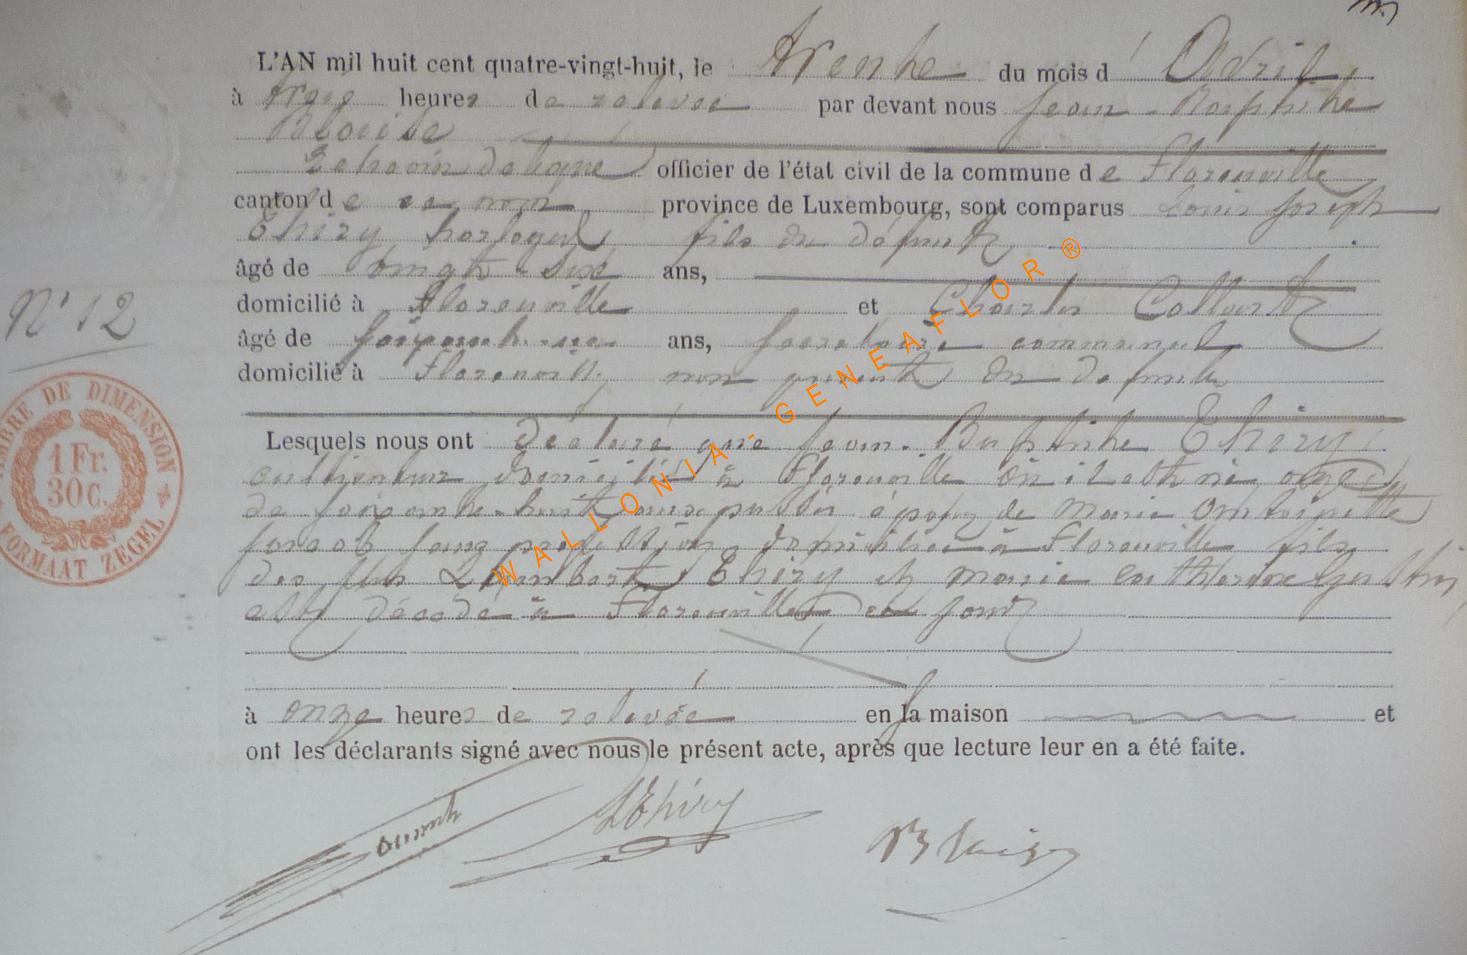 L'AN mil huit cent quatre-vingt-huit, le trente du mois d' Avril,
à trois heures de relevée par devant nous Jean-Baptiste
Blaise
Echevin délégué officier de l'état civil de la commune de Florenville
canton de ce nom province de Luxembourg, sont comparus Louis Joseph
Thiry, horloger, fils du défunt,
âgé de vingt-six ans,
domicilié à Florenville et Charles Collard
N° 12
âgé de ans, secrétaire communal
domicilié à Florenville, non parent du défunt
Lesquels nous ont déclaré que Jean-Baptiste Thiry,
cultivateur domicilié à Florenville où il est né âgé
de soixante-huit ans passés, époux de Marie Antoinette
Jacob sans profession domiciliée à Florenville, fils
des feus Lambert Thiry et Marie Catherine
est décédé à Florenville, ce jour
à onze heures de relevée en sa maison et
ont les déclarants signé avec nous le présent acte, après que lecture leur en a été faite.
LThiry
Blaise
TIMBRE DE DIMENSION
1 Fr.
30 C.
FORMAAT ZEGEL
WALLONIA-GENEAFLOR®